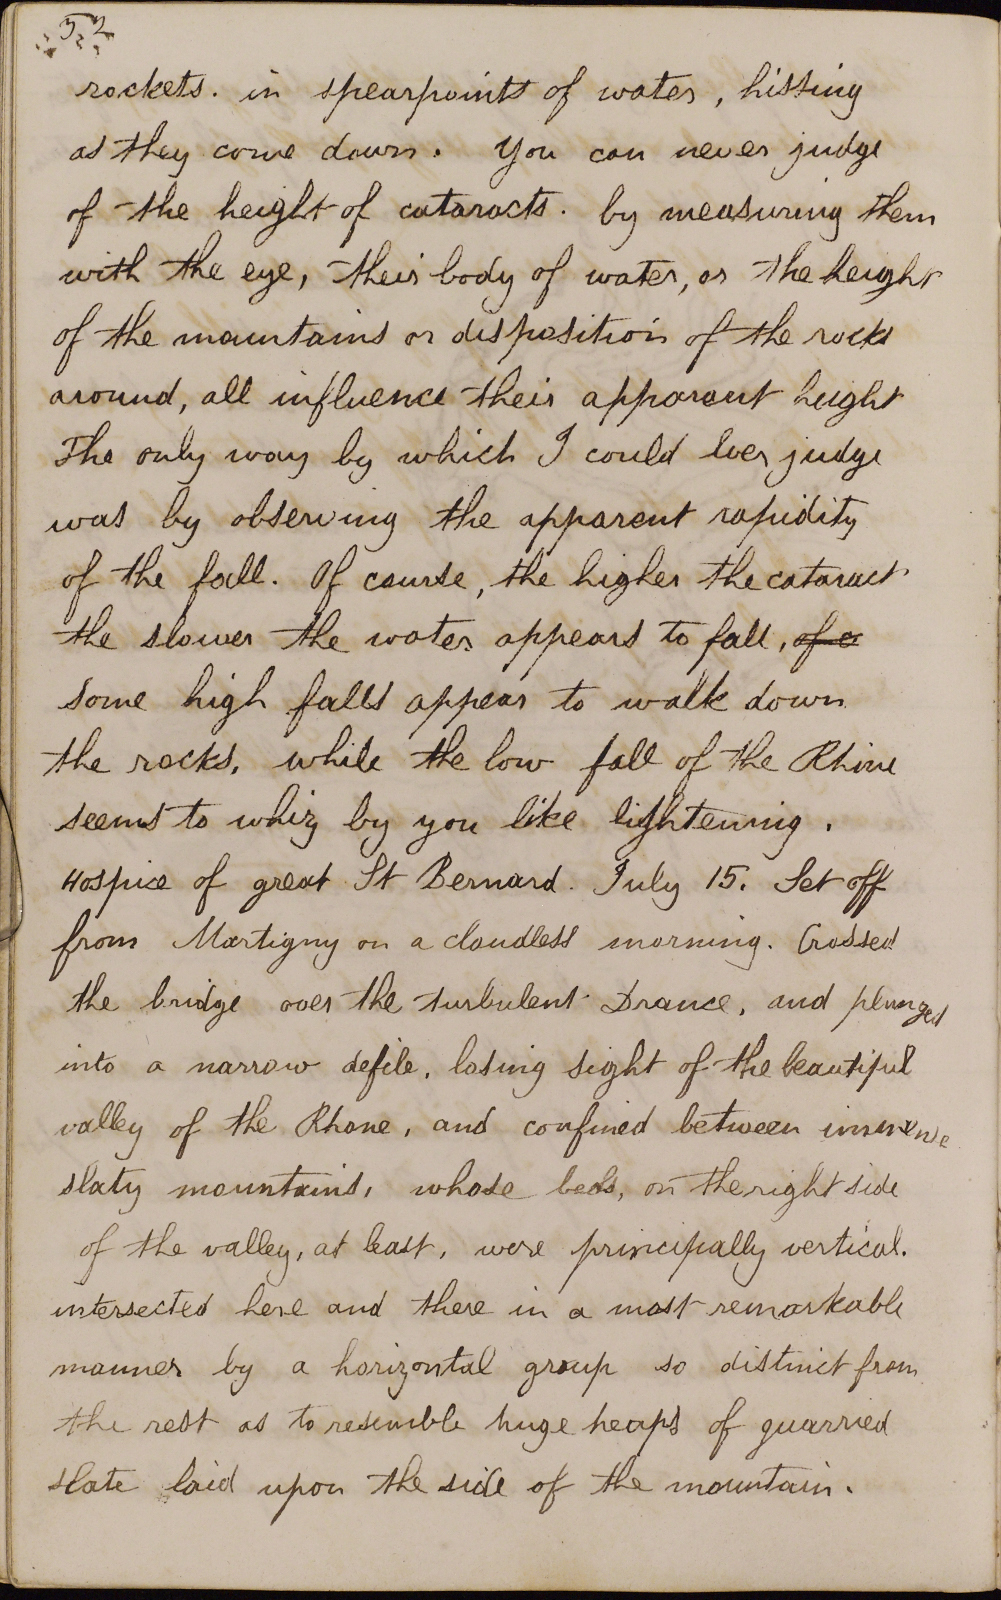 52
rockets. in spearpoints of water, hissing
as they come down. You can never judge
of the height of cataracts. by measuring them
with the eye, their body of water, or the height
of the mountains or disposition of the rocks
around, all influence their apparent height
The only way by which I could ever judge
was by observing the apparent rapidity
of the fall. Of course, the higher the cataract
the slower the water appears to fall, of a
some high falls appear to walk down
the rocks, while the low fall of the Rhine
seems to whiz by you like lightening.
Hospice of great St Bernard. July 15. Set off
from Martigny on a cloudless morning. Crossed
the bridge over the turbulent Drance, and plunged
into a narrow defile, losing sight of the beautiful
valley of the Rhone, and confined between immense
slaty mountains, whose beds, on the right side
of the valley, at least, were principally vertical.
intersected here and there in a most remarkable
manner by a horizontal group so distinct from
the rest as to resemble huge heaps of quarried
slate laid upon the side of the mountain.